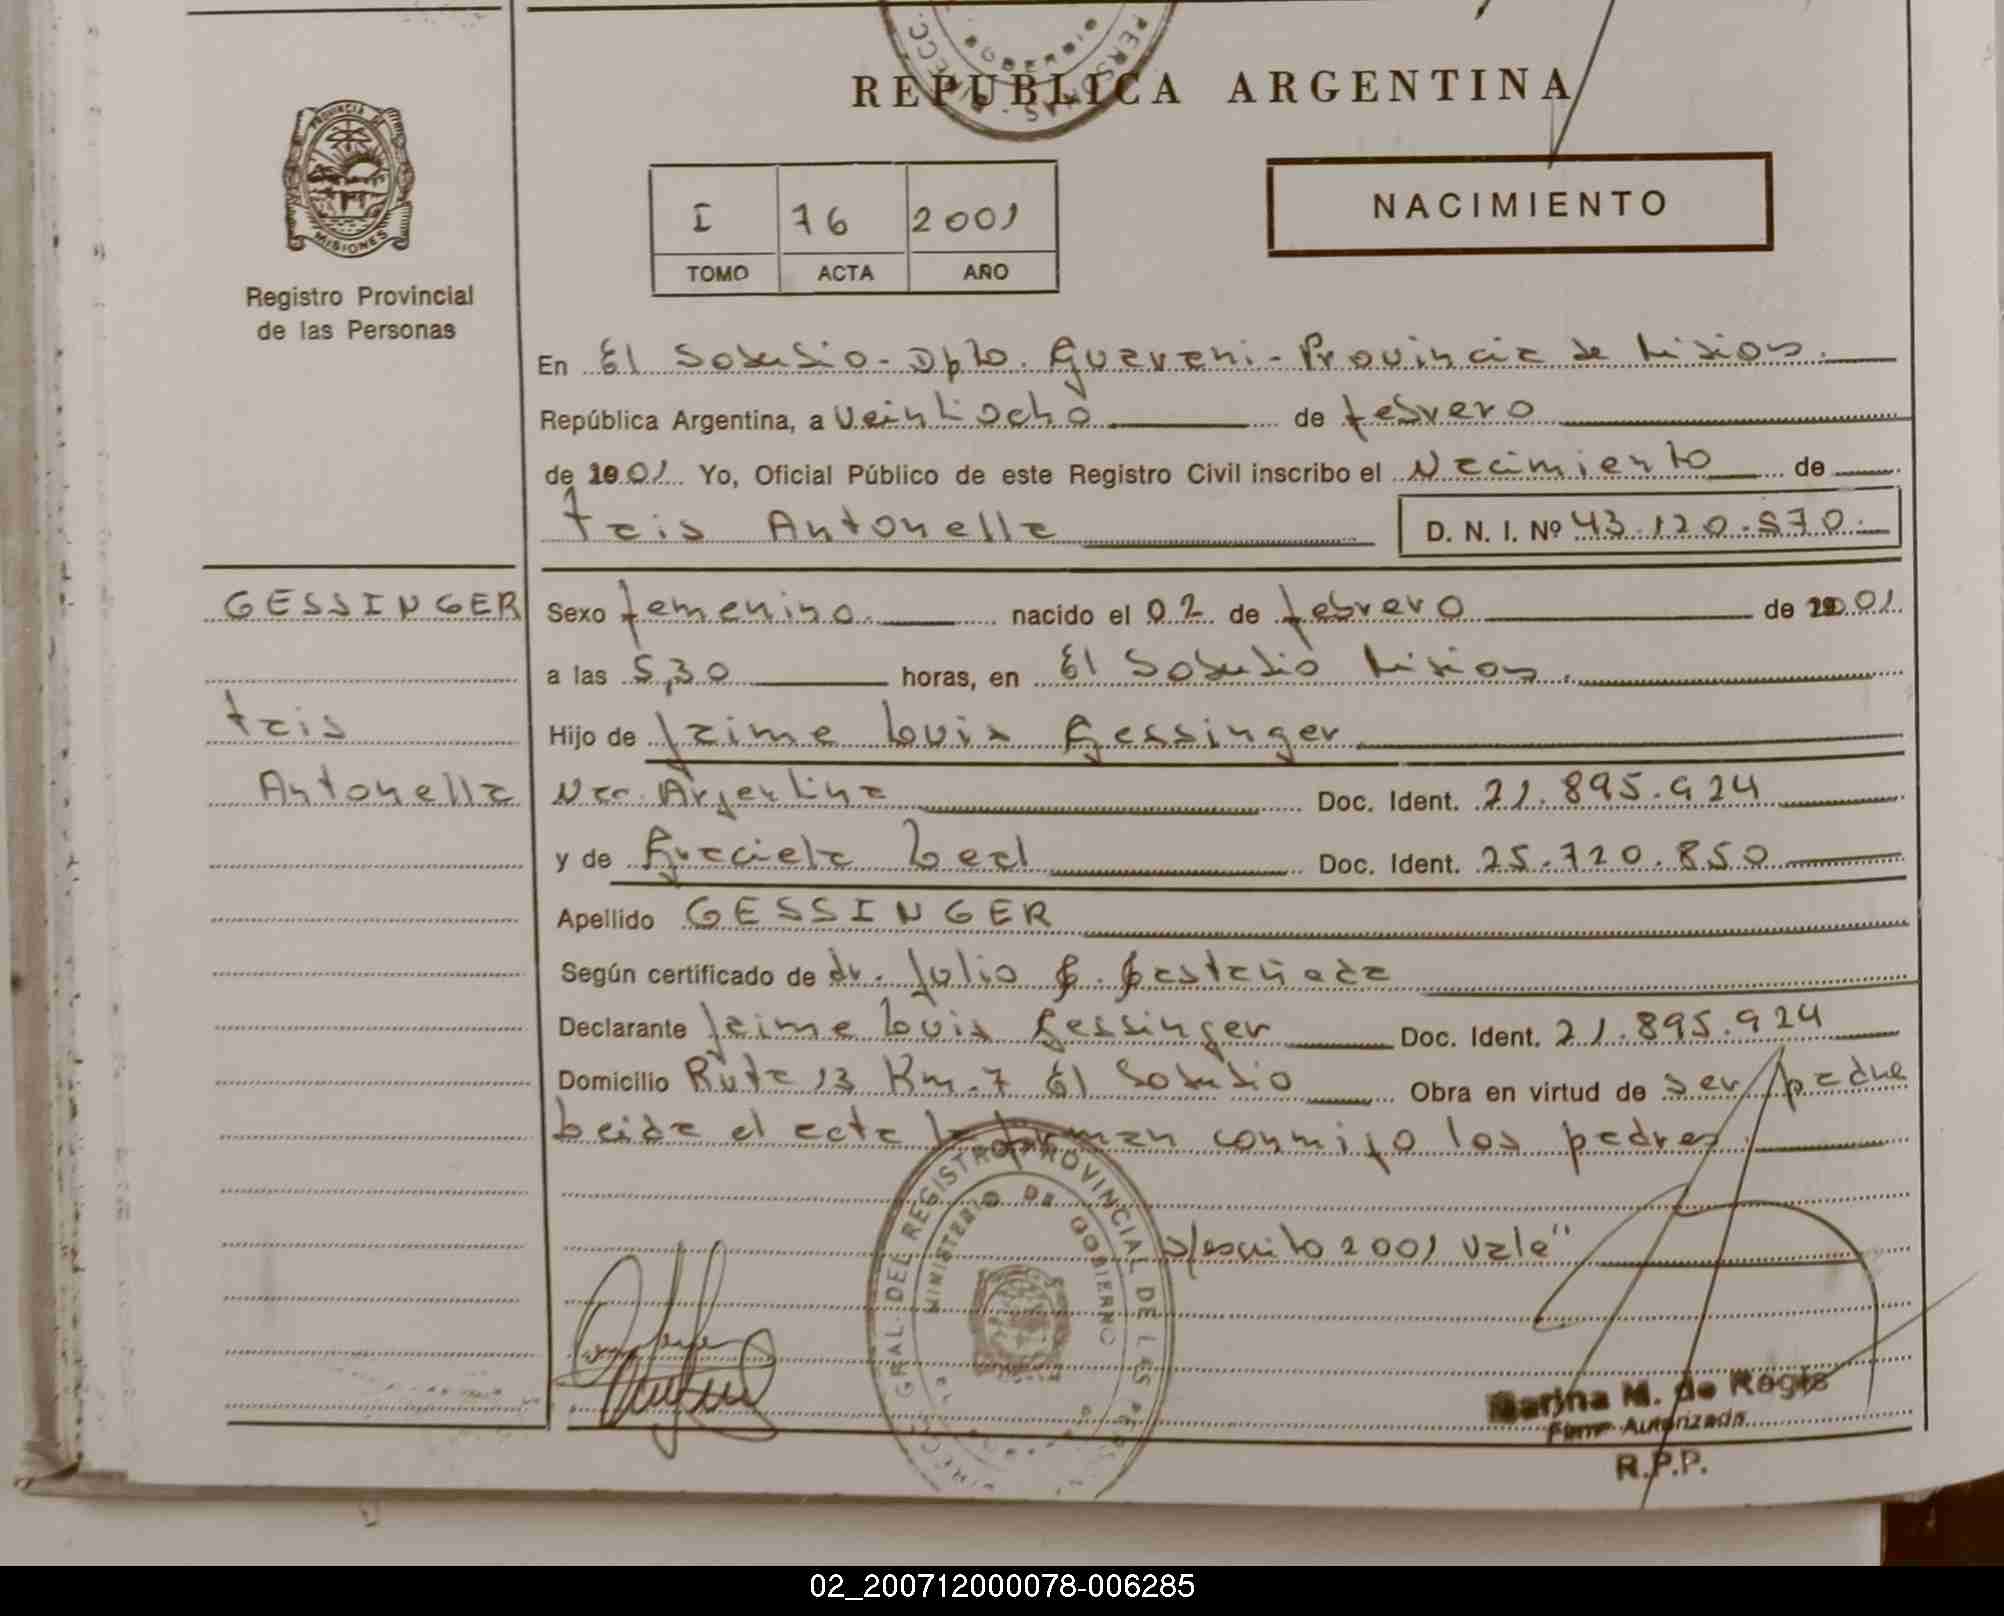 REPUBLICA ARGENTINA
PROVINCIA DE
MISIONES
Registro Provincial
de las Personas
NACIMIENTO
I 76 2001
TOMO ACTA AÑO
En El Soberbio - Dpto. Guarani - Provincia de Misiones.
República Argentina, a veintiocho de febrero
de 2001 Yo, Oficial Público de este Registro Civil inscribo el Nacimiento de
Tais Antonella D. N. I. Nº 43.120.570.
GESSINGER
Tais
Antonella
Sexo femenino nacido el 02 de febrero de 2001
a las 5,30 horas, en El Soberbio Misiones.
Hijo de Jaime Luis Gessinger
Nac. Argentina Doc. Ident. 21.895.924
y de Graciela Leal Doc. Ident. 25.720.850
Apellido GESSINGER
Según certificado de dr. Julio
Declarante Jaime Luis Gessinger Doc. Ident. 21.895.924
Domicilio Ruta 13 Km. 7 El Soberbio Obra en virtud de ser padre
Leida el acta la firman conmigo los padres.
S/escrito 2001 Vale"
GRAL. DEL REGISTRO PROVINCIAL DE LAS
MINISTERIO DE GOBIERNO
Marina M. de Regis
Firma Autorizada
R.P.P.
02_200712000078-006285